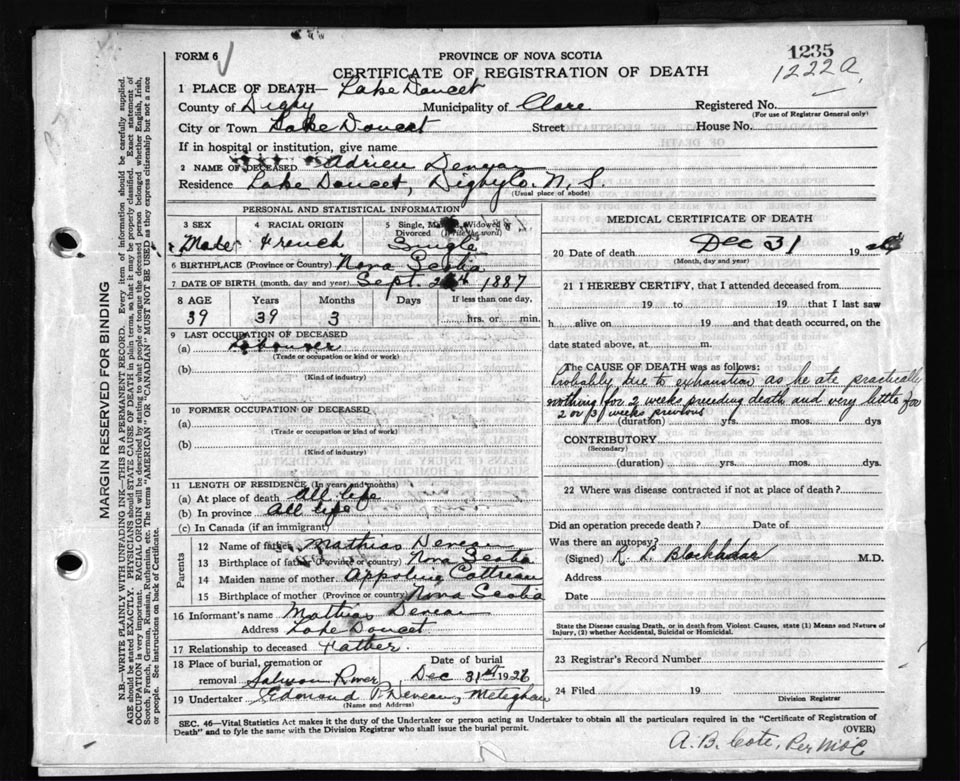 FORM 6
PROVINCE OF NOVA SCOTIA
1235
CERTIFICATE OF REGISTRATION OF DEATH
1222a
1 PLACE OF DEATH— Lake Doucet
County of Digby Municipality of Clare Registered No.
(For use of Registrar General only)
City or Town Lake Doucet Street House No.
If in hospital or institution, give name
2 NAME OF DECEASED Adrien Deneau
Residence Lake Doucet, Digby Co. N. S.
(Usual place of abode)
PERSONAL AND STATISTICAL INFORMATION
3 SEX 4 RACIAL ORIGIN 5 Single, Married, Widowed or
Divorced (write the word)
Male French Single
6 BIRTHPLACE (Province or Country) Nova Scotia
7 DATE OF BIRTH (month, day and year) Sept. 1887
8 AGE Years Months Days If less than one day,
39 39 3 hrs. or min.
9 LAST OCCUPATION OF DECEASED
(a) Labourer
(Trade or occupation or kind of work)
(b)
(Kind of industry)
10 FORMER OCCUPATION OF DECEASED
(a)
(Trade or occupation or kind of work)
(b)
(Kind of industry)
11 LENGTH OF RESIDENCE (In years and months)
(a) At place of death all life
(b) In province all life
(c) In Canada (if an immigrant)
Parents
12 Name of father Mathias Deneau
13 Birthplace of father (Province or country) Nova Scotia
14 Maiden name of mother Appoline Cottreau
15 Birthplace of mother (Province or country) Nova Scotia
16 Informant's name Mathias Deneau
Address Lake Doucet
17 Relationship to deceased Father.
18 Place of burial, cremation or Date of burial
removal Salmon River Dec 31st 1926
19 Undertaker Edmond P. Deneau, Meteghan
(Name and Address)
MEDICAL CERTIFICATE OF DEATH
20 Date of death Dec 31 19 26
(Month, day and year)
21 I HEREBY CERTIFY, that I attended deceased from
19 to 19 that I last saw
h alive on 19 and that death occurred, on the
date stated above, at m.
The CAUSE OF DEATH was as follows:
Probably due to exhaustion as he ate practically
nothing for 2 weeks preceding death and very little for
2 or (3) weeks previous
(duration) yrs. mos. dys
CONTRIBUTORY
(Secondary)
(duration) yrs. mos. dys.
22 Where was disease contracted if not at place of death?
Did an operation precede death? Date of
Was there an autopsy?
(Signed) R. L. Blackadar M.D.
Address
Date
State the Disease causing Death, or in death from Violent Causes, state (1) Means and Nature of
Injury, (2) whether Accidental, Suicidal or Homicidal.
23 Registrar's Record Number
24 Filed 19
Division Registrar
SEC. 46—Vital Statistics Act makes it the duty of the Undertaker or person acting as Undertaker to obtain all the particulars required in the "Certificate of Registration of
Death" and to fyle the same with the Division Registrar who shall issue the burial permit. (OVER)
A. B. Cote, Per M
MARGIN RESERVED FOR BINDING
N.B.—WRITE PLAINLY WITH UNFADING INK—THIS IS A PERMANENT RECORD. Every item of information should be carefully supplied.
AGE should be stated EXACTLY. PHYSICIANS should STATE CAUSE OF DEATH in plain terms, so that it may be properly classified. Exact statement of
OCCUPATION is very important. RACIAL ORIGIN will be described by stating to what people or tongue the deceased person belonged whether English, Irish,
Scotch, French, German, Russian, Ruthenian, etc. The terms "AMERICAN" OR "CANADIAN" MUST NOT BE USED as they express citizenship but not a race
or people. See instructions on back of Certificate.